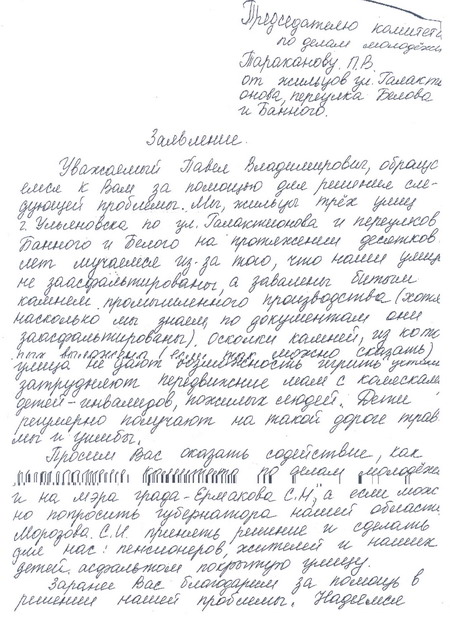 Председателю комитета
по делам молодёжи
Тараканову. П.В.
от жильцов ул. Галакти
онова, переулка Белова
и Банного.
Заявление.
Уважаемый Павел Владимирович, обращ
емся к Вам за помощью для решения сле-
дующей проблемы. Мы, жильцы трёх улиц
г. Ульяновска по ул. Галактионова и переулков
Банного и Белого на протяжении десятков
лет мучаемся из-за того, что наши улиц
не заасфальтированы, а завалены битым
камнем промышленного производства (хотя
насколько мы знаем по документам они
заасфальтированы). Осколки камней, из кот
рых выложены (если так можно сказать)
улица не дают возможность играть детям
затрудняют передвижение мам с колясками
детей-инвалидов, пожилых людей. Дети
регулярно получают на такой дороге трав
мы и ушибы.
Просим Вас оказать содействие, как
по делам молодёжи
и на мэра града-Ермакова С.Н", а если мож
но попросить губернатора нашей области
Морозова. С.И. принять решение и сделать
для нас: пенсионеров, жителей и наших
детей асфальтом покрытую улицу.
Заранее Вас благодарим за помощь в
решении нашей проблемы. Надеемся